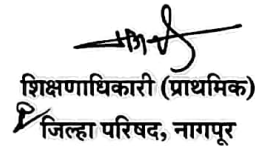 शिक्षणाधिकारी (प्राथमिक)
जिल्हा परिषद, नागपूर